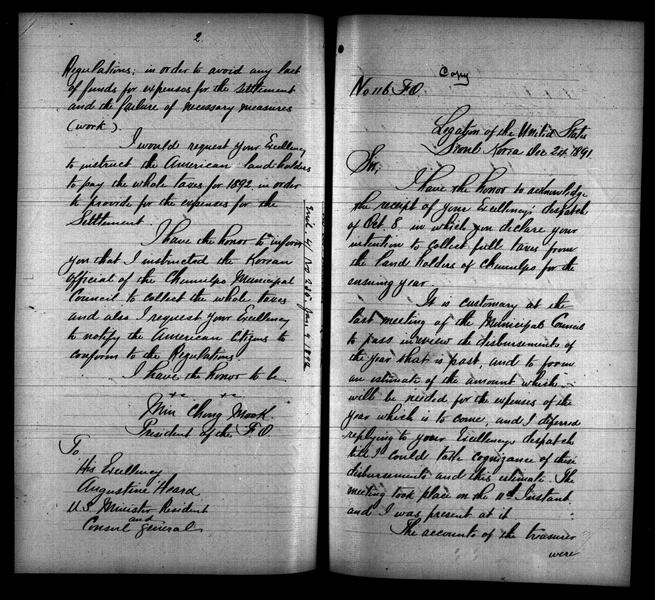 2.
Regulations; in order to avoid any lack
of funds for expenses for the settlement
and the failure of necessary measures
(work).
I would request your Excellency
to instruct the American land holders
to pay the whole taxes for 1892 in order
to provide for the expenses for the
Settlement.
I have the honor to inform
you that I instructed the Korean
Official of the Chemulpo Municipal
Council to collect the whole taxes
and also I request your Excellency
to notify the American Citizens to
conform to the Regulations.
I have the honor to be
Min Chong Mook
President of the F.O.
To
His Excellency
Augustine Heard
U.S. Minister Resident
and
Consul General
Copy
No 116 F.O.
Legation of the United States
Seoul Korea Dec 24, 1891
Sir;
I have the honor to acknowledge
the receipt of your Excellency's despatch
of Oct. 8, in which you declare your
intention to collect full taxes from
the land holders of Chemulpo for the
ensuing year.
It is customary at the
last meeting of the Municipal Council
to pass in review the disbursements of
the year that is past, and to form
an estimate of the amount which
will be needed for the expenses of the
year which is to come, and I deferred
replying to your Excellency's despatch
till I could take cognizance of these
disbursements and this estimate. The
meeting took place on the 11th Instant
and I was present at it.
The accounts of the treasurer
were